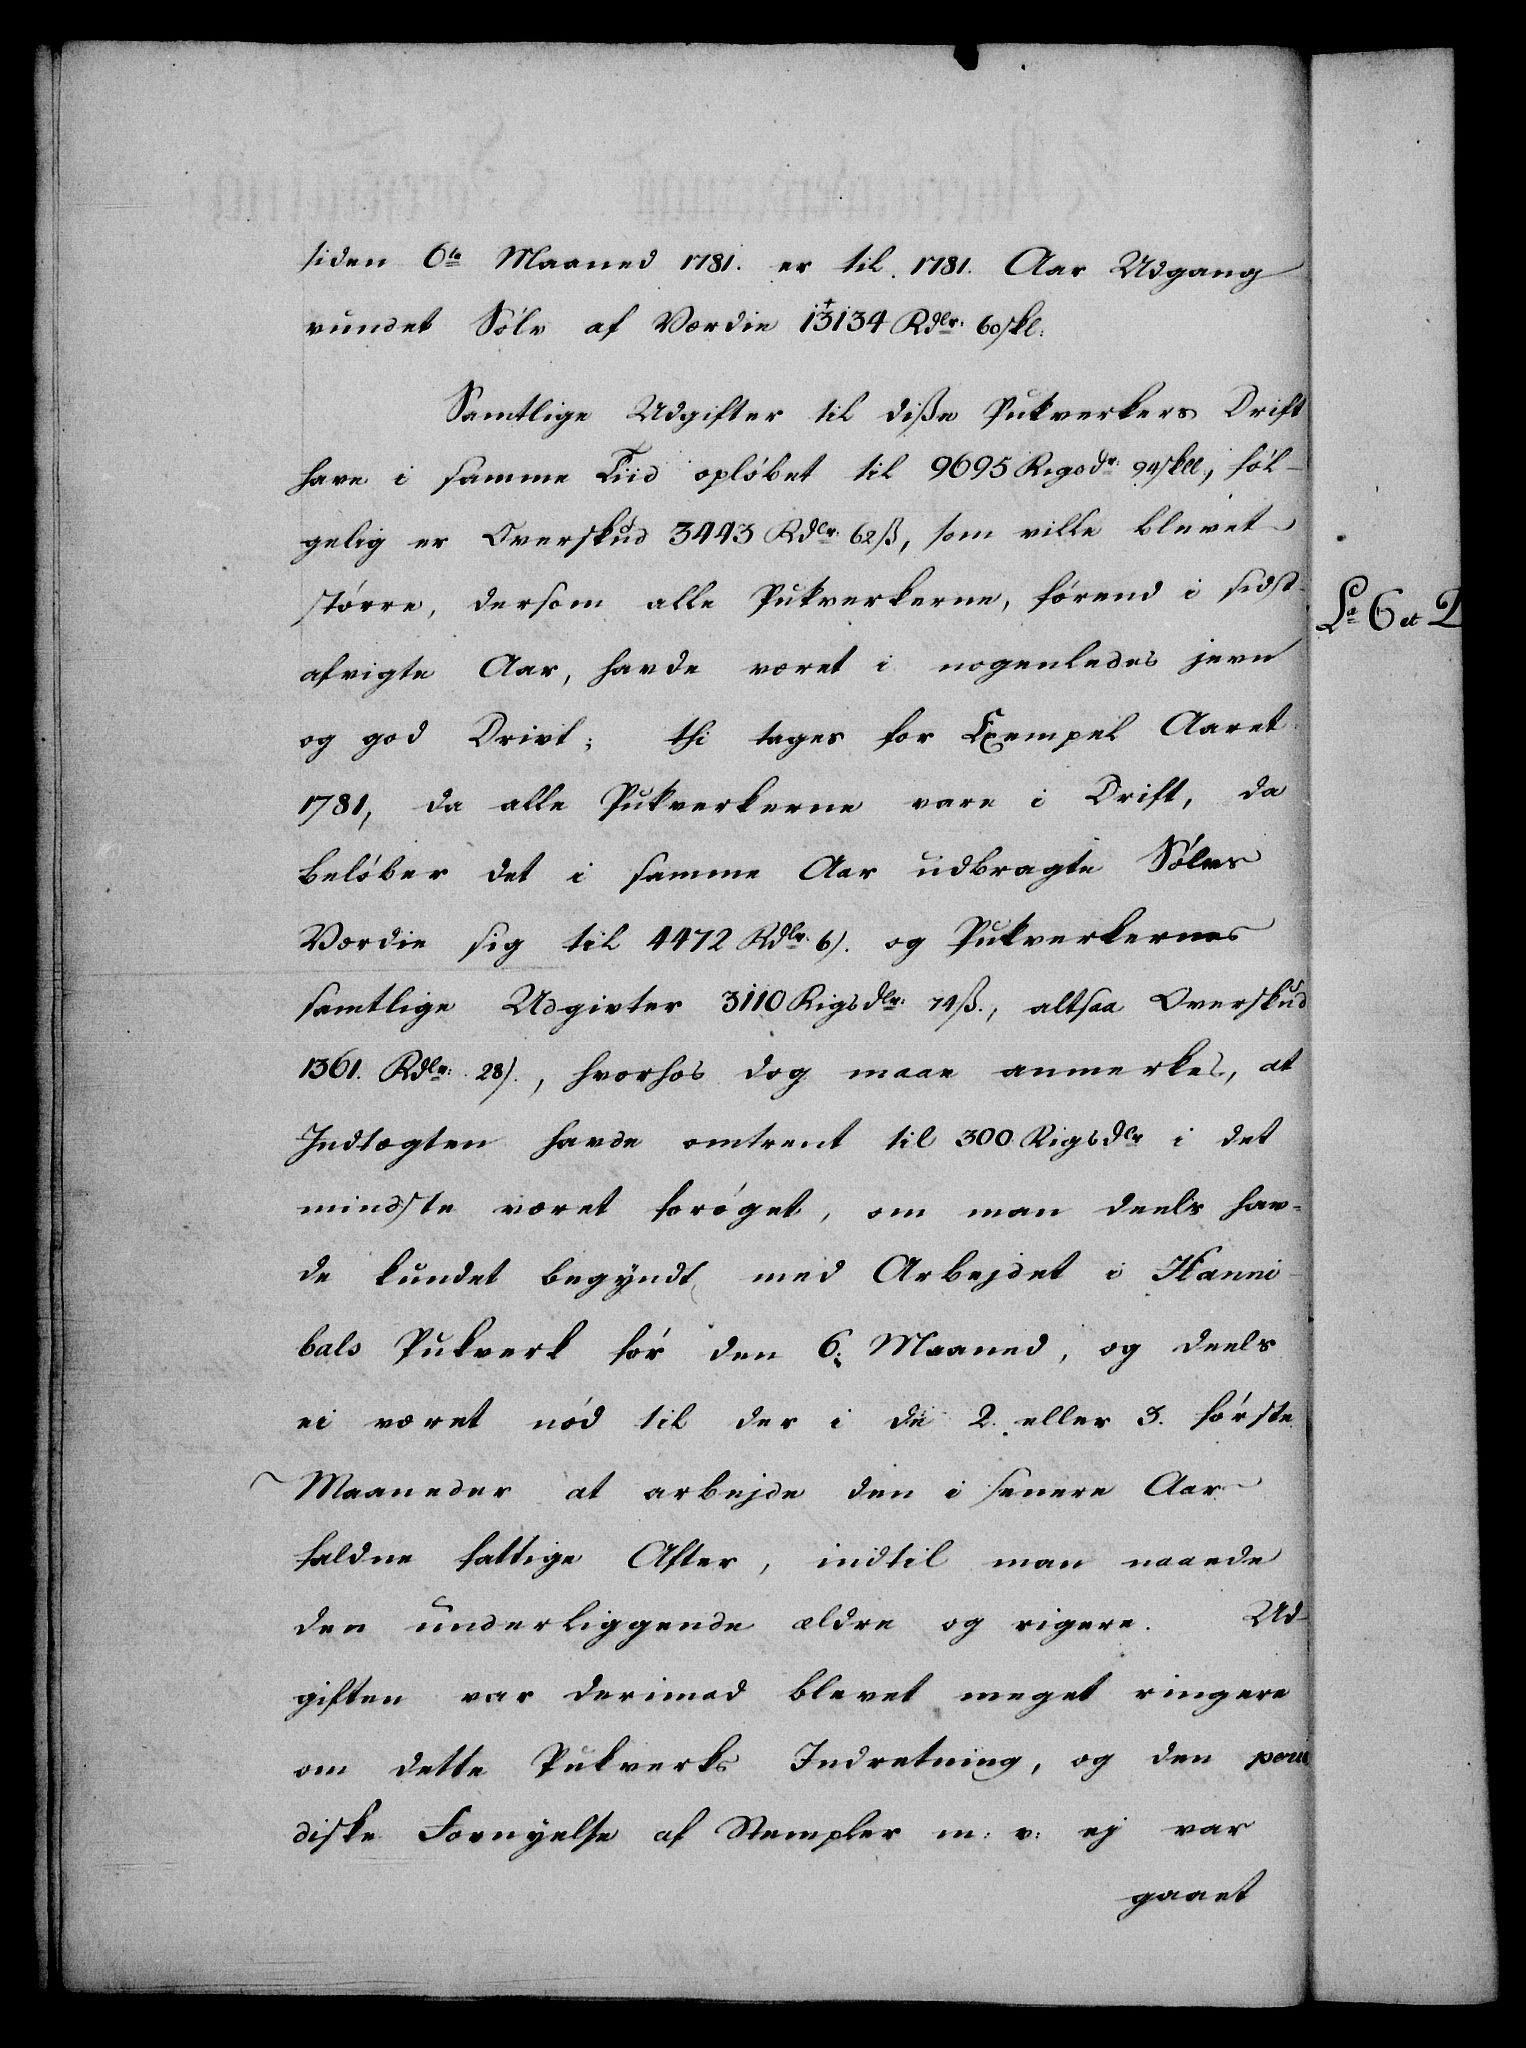 siden 6te Maaned 1781. er til 1781. Aar Udgang
vundet Sølv af Værdie 13134 Rdlr. 60 skl:
Samtlige Udgifter til diße Pukverkers Drift
have i samme Tiid opløbet til 9695 Rigsdr. 94 skll., føl-
gelig er Overskud 3443 Rdlr. 62 ß, som ville blevet
større, dersom alle Pukverkerne, førend i sidst-
afvigte Aar, havde været i nogenledes jevn
og god Drivt; thi tages for Exempel Aaret
1781, da alle Pukverkerne vare i Drift, da
beløber det i samme Aar udbragte Sølvs
Værdie sig til 4472 Rdlr. 6 ß. og Pukverkernes
samtlige Udgivter 3110 Rigsdlr. 74 ß., altsaa Overskud
1361. Rdlr. 28 ß., hvorhos dog maae anmerkes, at
Indtægten havde omtrent til 300 Rigsdlr i det
mindste været forøget, om man deels hav-
de kundet begyndt med Arbejdet i Hanni-
bals Pukverk før den 6. Maaned, og deels
ei været nød til der i de 2. eller 3. første
Maaneder at arbejde den i senere Aar
faldne fattige After, indtil man naaede
den underliggende ældre og rigere. Ud-
giften var derimod blevet meget ringere
om dette Pukverks Indretning, og den perio
diske Fornyelse af Stempler m: v: ej var
gaaet
La 6 et D